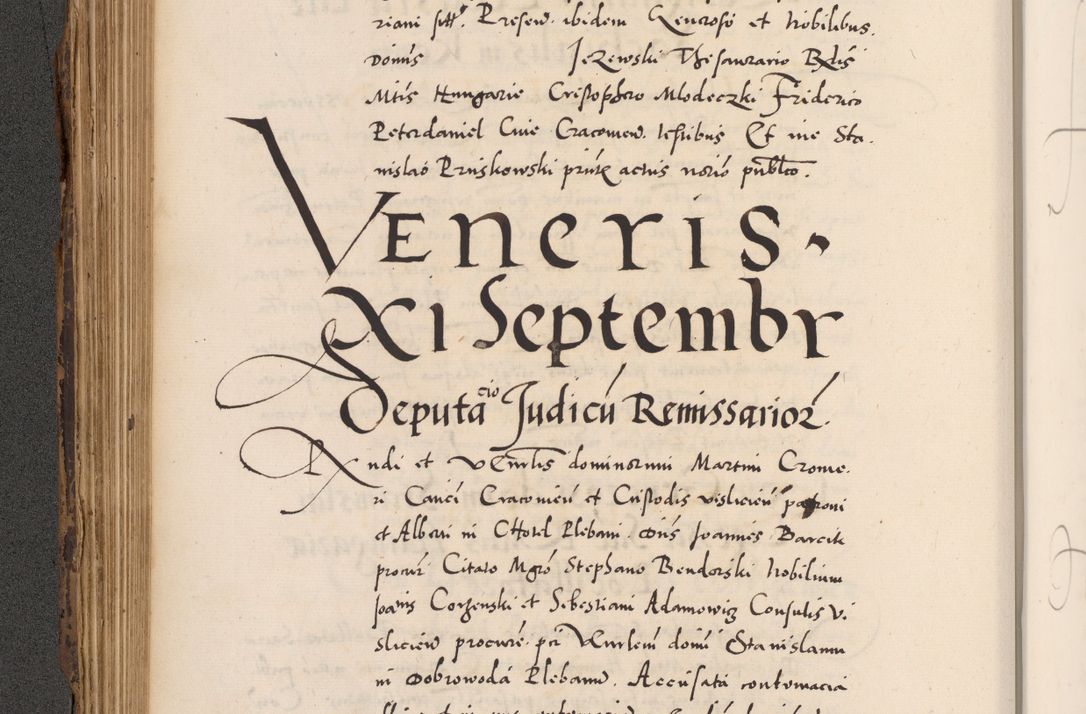 riani Presen. ibidem Generoso et Nobilibus.
Domis Jezewski Thesaurario
Mtis Hungarie Cristophoro Mlodeczki Friderico
Peterdaniel Ciue Cracouien. testibus Et me Sta.
nislao Pruskowski actis
Veneris.
Xi Septembr
Deputacio Judicu Remissarior
Rndi et dominorum Martini Crome.
ri Canci Cracouien et Custodis vislicien patroni
et Alberti in Chotel Plebani. Joannes Barcik
procur Citato Mgro Stephano Bendorski Nobilium
Joanis et Sebestiani Adamowicz Consulis Vi.
slicien procure. domi Stanislaum
in Dobrowoda Plebanu. Accusata contumacia